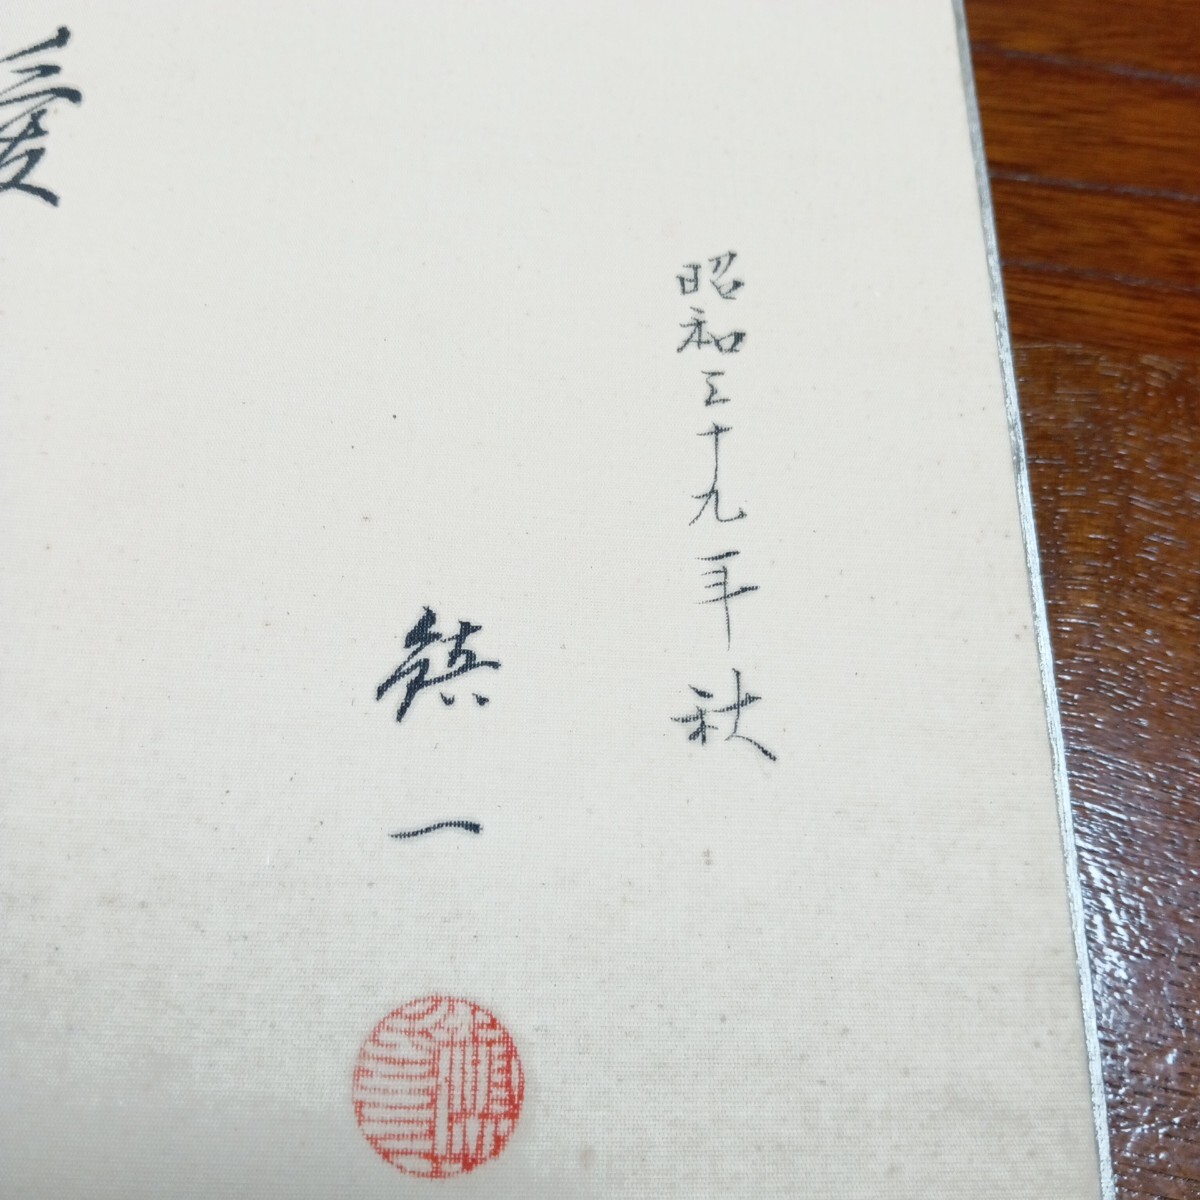 昭和三十九年秋
鎮一
愛